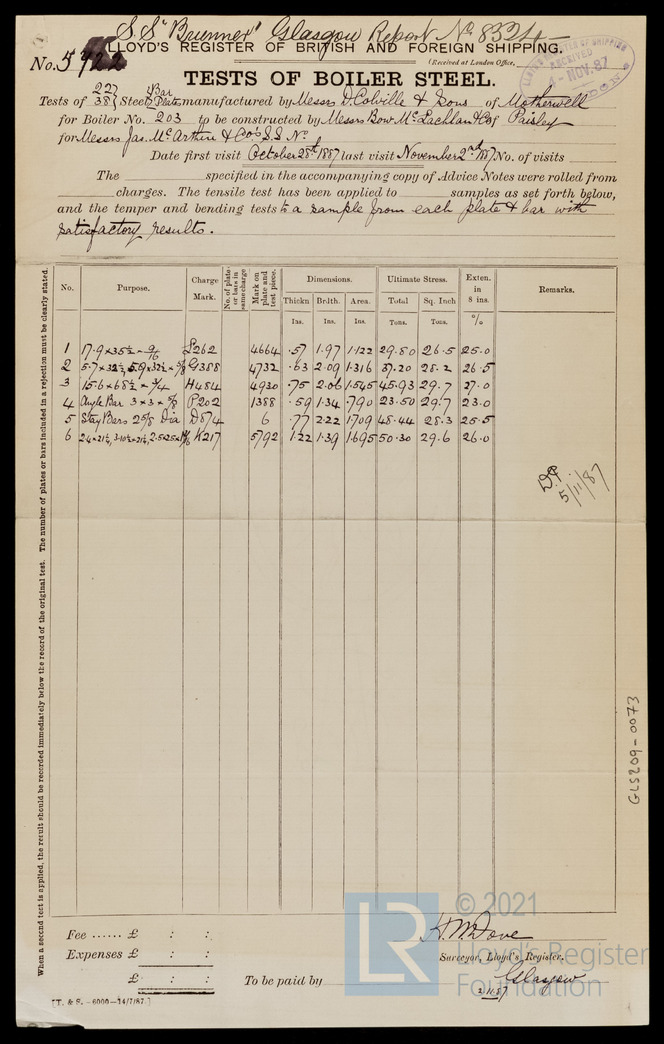 S.S "Brunner" Glasgow Report No. 8324
LLOYD'S REGISTER OF BRITISH AND FOREIGN SHIPPING.
No. 5422
(Received at London Office,
LLOYD'S REGISTER OF SHIPPING
RECEIVED
4-NOV.87
LONDON
TESTS OF BOILER STEEL.
Tests of 227 38 } Steel { Bar Plate manufactured by Messrs D. Colville & Sons of Motherwell
for Boiler No. 203 to be constructed by Messrs Bow McLachlan & Co of Paisley
for Messrs Jas. McArthur & Cos S.S. No.
Date first visit October 28th 1887 last visit November 2nd 1887 No. of visits
The specified in the accompanying copy of Advice Notes were rolled from
charges. The tensile test has been applied to samples as set forth below,
and the temper and bending tests to a sample from each plate & bar with
satisfactory results.
No. Purpose. Charge Mark. No. of plates or bars in same charge Mark on plate and test piece. Dimensions. Ultimate Stress. Exten. in 8 ins. Remarks.
Thickn Br.lth. Area. Total Sq. Inch
Ins. Ins. Ins. Tons. Tons. %
1 17.9 × 35½ - 9/16 L262 4664 .57 1.97 1.122 29.80 26.5 25.0
2 5.7 × 32½, 5.9 × 32½ × 5/8 G1388 4732 .63 2.09 1.316 37.20 28.2 26.5
3 15.6 × 68½ × 3/4 H484 4930 .75 2.06 1.545 45.93 29.7 27.0
4 Angle Bar 3 × 3 × 5/8 P202 1388 .59 1.34 .790 23.50 29.7 23.0
5 Stay Bars 2 5/8 Dia D574 6 .77 2.22 1.709 48.44 28.3 25.5
6 K217 5792 1.22 1.39 1.695 50.30 29.6 26.0
5/11/87
When a second test is applied, the result should be recorded immediately below the record of the original test. The number of plates or bars included in a rejection must be clearly stated.
GLS209-0073
Fee ...... £ : :
Expenses £ : :
£ : :
To be paid by
H. M. Dove
Surveyor, Lloyd's Register.
Glasgow
2.11.87
[T. & S. -6000-14/7/87.]
© 2021
LR
Lloyd's Register
Foundation